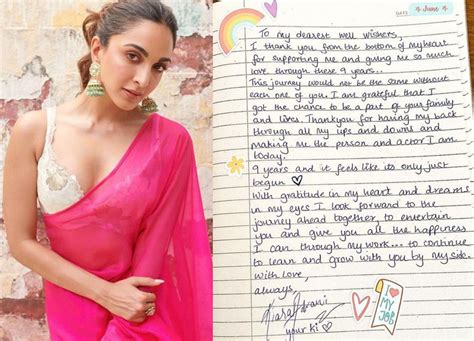 DATE 🌸 June 🌸
To my dearest well wishers,
I thank you from the bottom of my heart
for supporting me and giving me so much
love through these 9 years..
This journey would not be the same without
each one of you. I am grateful that I
got the chance to be a part of your family
and lives. Thankyou for having my back
through all my ups and downs and
making me the person and actor I am
today.
9 years and it feels like its only just
begun ♡
With gratitude in my heart and dreams
in my eyes I look forward to the
journey ahead together to entertain
you and give you all the happiness
I can through my work... to continue
to learn and grow with you by my side.
With love
always,
Kiara Advani
your ki ♡
I ♥
MY
JOB